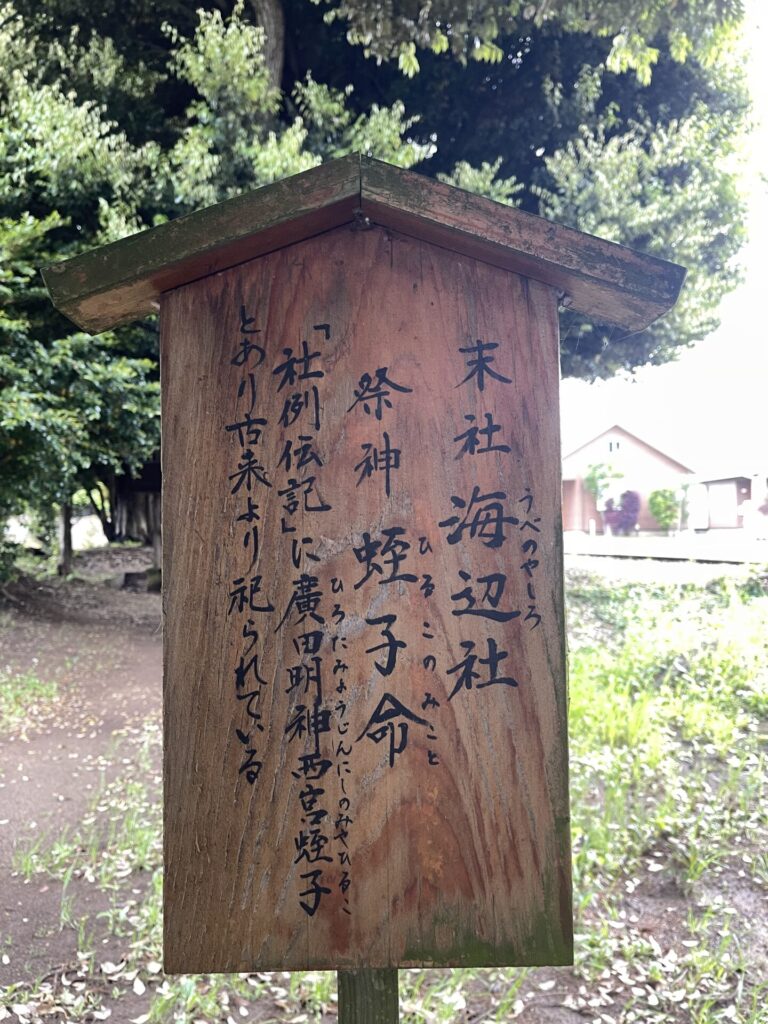 末社海辺社
うべのやしろ
祭神 蛭子命
ひるこのみこと
「社例伝記」に廣田明神西宮蛭子
ひろたみょうじんにしのみやひるこ
とあり古来より祀られている